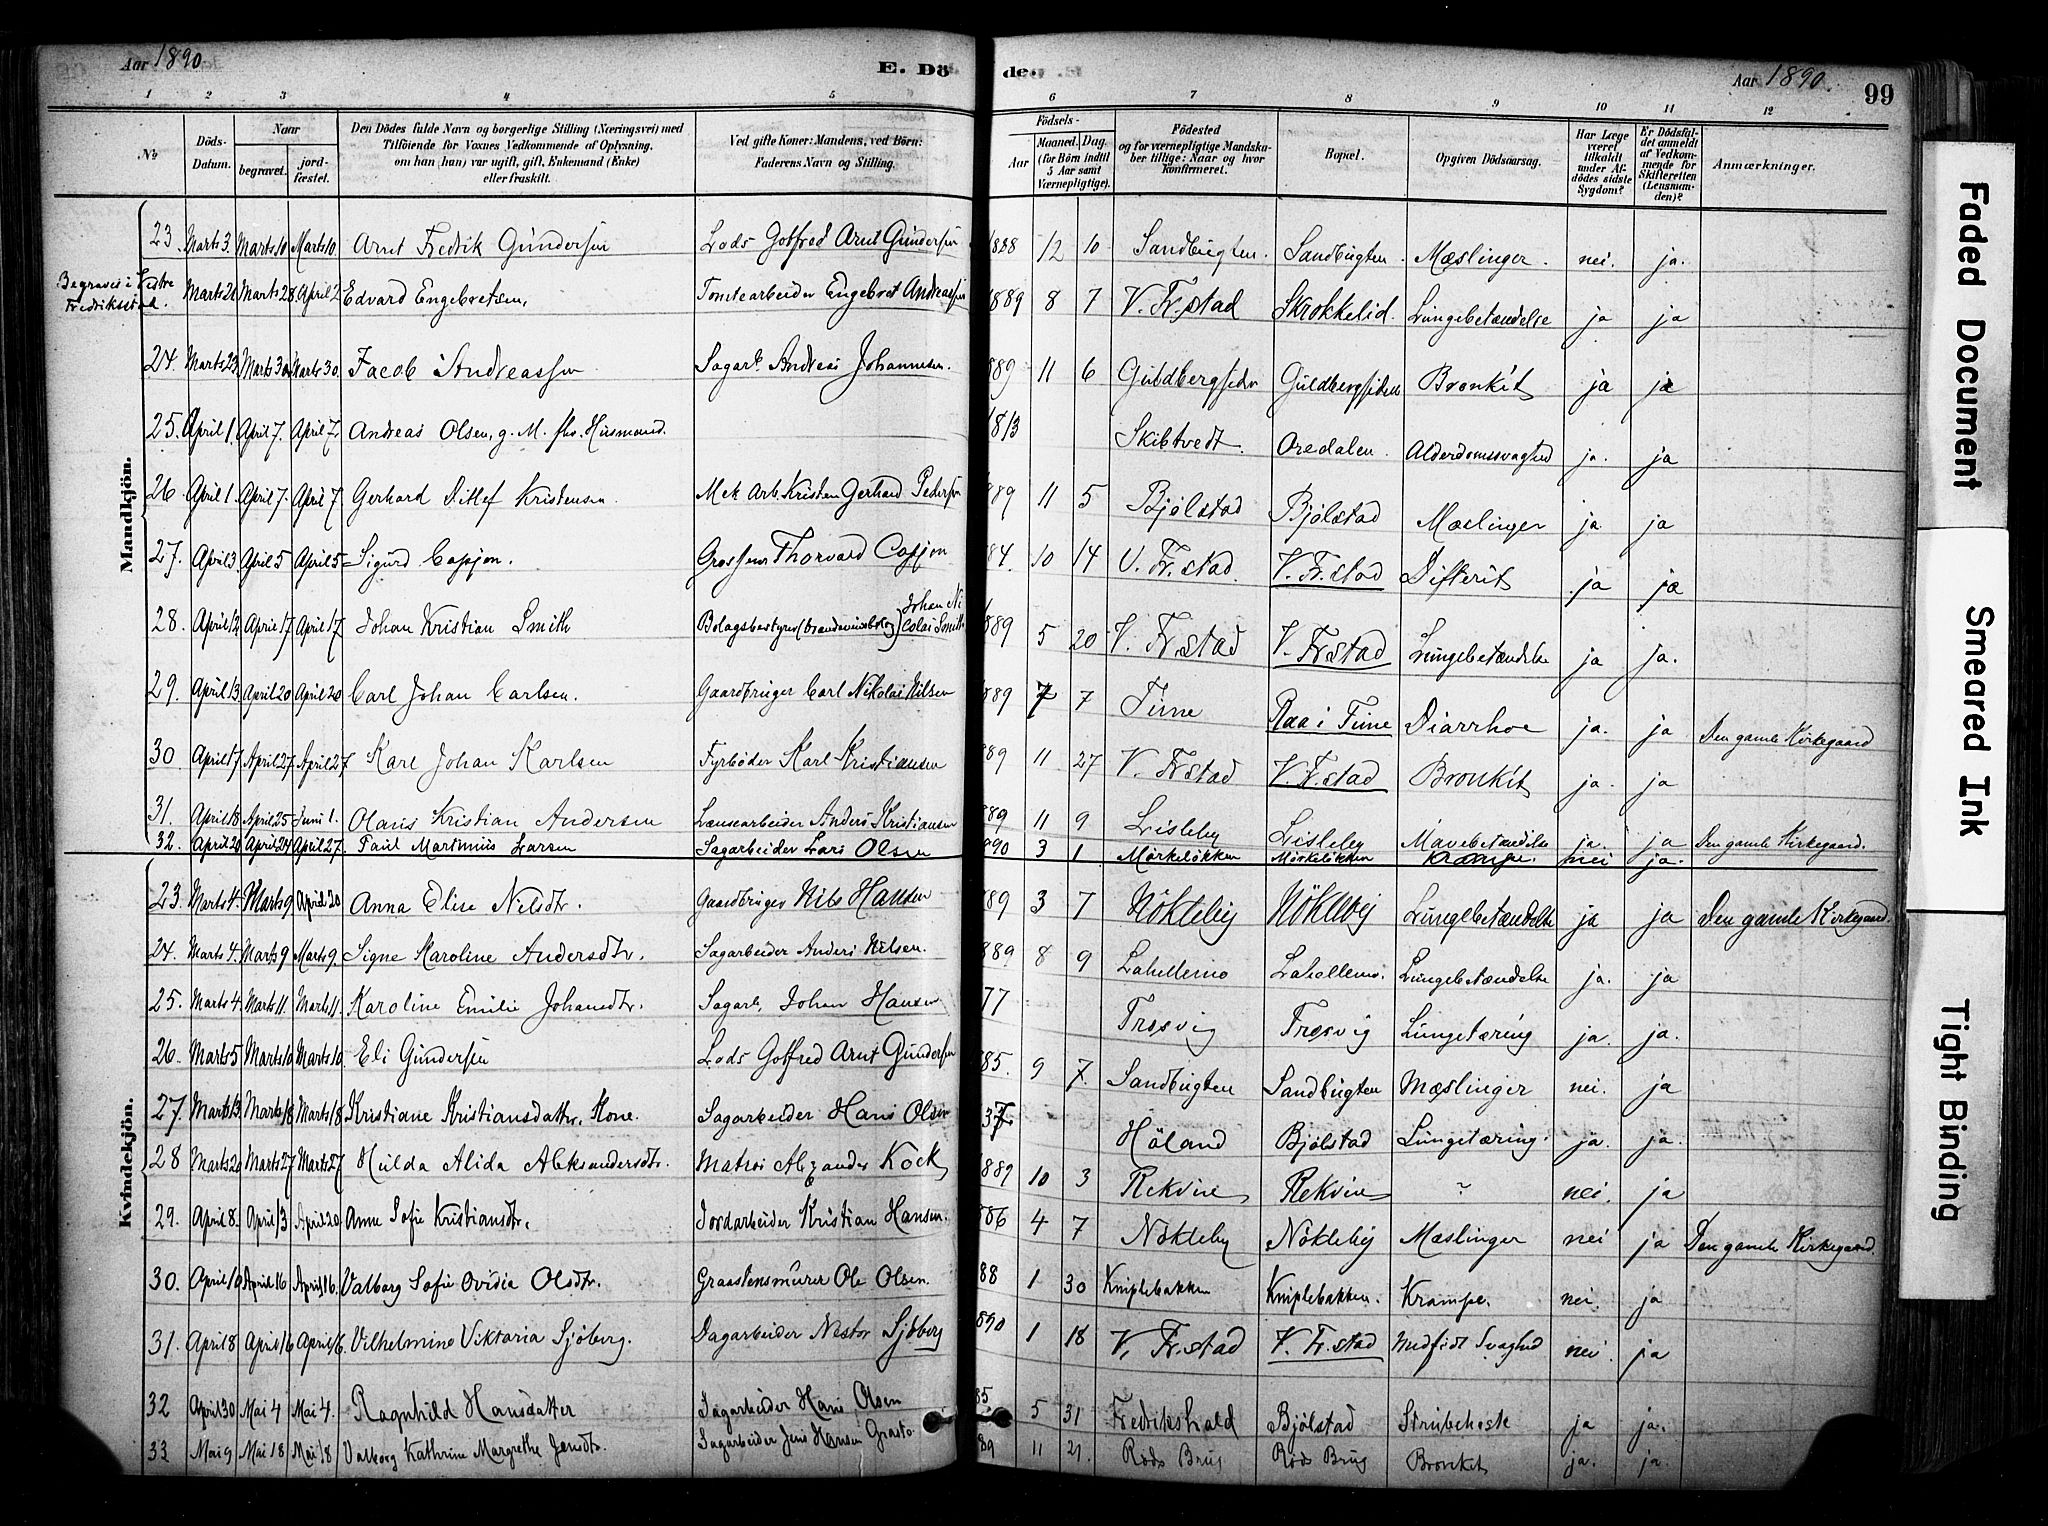 Aar 1890. E. Døde. Aar 1890. 99
1 2 3 4 5 6 7 8 9 10 11 12
No Döds-Datum. Naar begravet. jordfæstet. Den Dödes fulde Navn og borgerlige Stilling (Næringsvei) med Tilföiende for Voxnes Vedkommende af Oplysning, om han (hun) var ugift, gift, Enkemand (Enke) eller fraskilt. Ved gifte Koner: Mandens, ved Börn: Faderens Navn og Stilling. Födsels- Aar Maaned. Dag. (for Börn indtil 5 Aar samt Værnepligtige). Födested og for værnepligtige Mandskaber tillige: Naar og hvor konfirmeret. Bopæl. Opgiven Dödsaarsag. Har Læge været tilkaldt under Afdödes sidste Sygdom? Er Dödsfaldet anmeldt af Vedkommende for Skifteretten (Lensmanden)? Anmærkninger.
Mandkjön.
23. Marts 3. Marts 10 Marts 10. Arnt Fredrik Gundersen Lods Gotfred Arnt Gundersen 1888 12 10 Sandbugten. Sandbugten. Mæslinger. nei. ja.
Begravet i Vestre Fredrikstad. Marts 28 April 2 Edvard Engebretsen, Tomtearbeider Engebret Andreassen 1889 8 7 V. Fr.stad Skrokkelid. Lungebetændelse ja ja
24. Marts 23 Marts 30 Marts 30. Jacob Andreassen Sagarb. Andreas Johannesen. 889 11 6 Guldbergsiden Guldbergsiden Bronkit ja ja
25. April 1. April 7. April 7. Andreas Olsen, g. M. fhv. Husmand. 1813 Skibtvedt. Oredalen. Alderdomssvaghed ja. ja
26. April 1. April 7. April 7 Gerhard Ditlef Kristensen. Mek Arb. Kristen Gerhard Pedersen 889 11 5 Bjölstad Bjölstad Mæslinger ja ja
27. April 3 April 5 April 5 Sigurd Cappon. Thorvard Cappon 84. 10 14 V. Fr.stad. V. Fr.stad Difterit ja ja
28. April 17 April 17 Johan Kristian Smith Bolagsbestyrer (brændevinsbolag) Johan Nicolai Smith 889 5 20 V. Fr.stad V. Frstad Lungebetændelse ja ja.
29. April 13 April 20 April 20 Carl Johan Carlsen. Gaardbruger Carl Nikolai Nilsen 889 7 7 Tune Raa i Tune Diarrhoe ja. ja Den gamle Kirkegaard
30 April 17 April 27 April 27 Karl Johan Karlsen Fyrböder Karl Kristiansen 889 11 27 V. Frstad V. Fr.stad Bronkit ja. ja
31. April 18 April 25 Juni 1. Olaus Kristian Andersen Lænsearbeider Anders Kristiansen 889 11 9 Lisleby Lisleby Mavebetændelse ja. ja Den gamle Kirkegaard.
32. April 20 April 24 April 27. Paul Martinius Larsen Sagarbeider Lars Olsen 890 3 1 Mörkelökken Mörkelökken Krampe. nei ja.
Kvindekjön.
23. Marts 4. Marts 9 April 20 Anna Elise Nilsdtr. Gaardbruger Nils Hansen 89 3 7 Nökleby Nökleby Lungebetændelse ja ja Den gamle Kirkegaard.
24. Marts 4. Marts 9 Marts 9. Signe Karoline Andersdtr. Sagarbeider Anders Nilsen. 889 8 9 Lahellemo Lahellemo. Lungebetændelse ja. ja
25. Marts 4. Marts 11. Marts 11. Karoline Emilie Johansdtr. Sagarb. Johan Hansen 77 Trosvig Trosvig Lungetæring ja. ja.
26. Marts 5 Marts 10 Marts 10. Eli Gundersen Lods Gotfred Arnt Gundersen 85. 9 7. Sandbugten Sandbugten Mæslinger nei. ja
27. Marts 13 Marts 18 Marts 18 Kristiane Kristiansdatter. Kone. Sagarbeider Hans Olsen 37 Höland Bjölstad Lungetæring. ja. ja.
28 Marts 20 Marts 27 Marts 27 Hulda Alida Aleksandersdtr. Matros Alexander Kock 1889 10 3 Rekvin Rekvin ? nei. ja
29. April 8. April 13 April 20 Anne Sofie Kristiansdtr. Jordarbeider Kristian Hansen. 886 4 7 Nökleby Nökleby Mæslinger nei ja Den gamle Kirkegaard.
30. April 10 April 16 April 16. Valborg Sofie Ovidia Olsdtr. Graastensmurer Ole Olsen. 88 1 30 Kniplebakken Kniplebakken. Krampe. nei. ja
31. April 8 April 16 April 16. Vilhelmine Viktoria Sjöberg. Dagarbeider Nestor Sjöberg 890 1 18 V. Fr.stad V. Fr.stad Medfödt Svaghed nei. ja
32 April 30 Mai 4 Mai 4. Ragnhild Hansdatter Sagarbeider Hans Olsen 85. 5 31 Fredrikshald Bjölstad Strubehoste ja ja.
33 Mai 9 Mai 18 Mai 18 Valborg Kathrine Margrethe Jensdtr. Sagarbeider Jens Hansen 89 11 21. Röds Brug Röds Brug Bronkit ja. ja.
Faded Document
Smeared Ink
Tight Binding